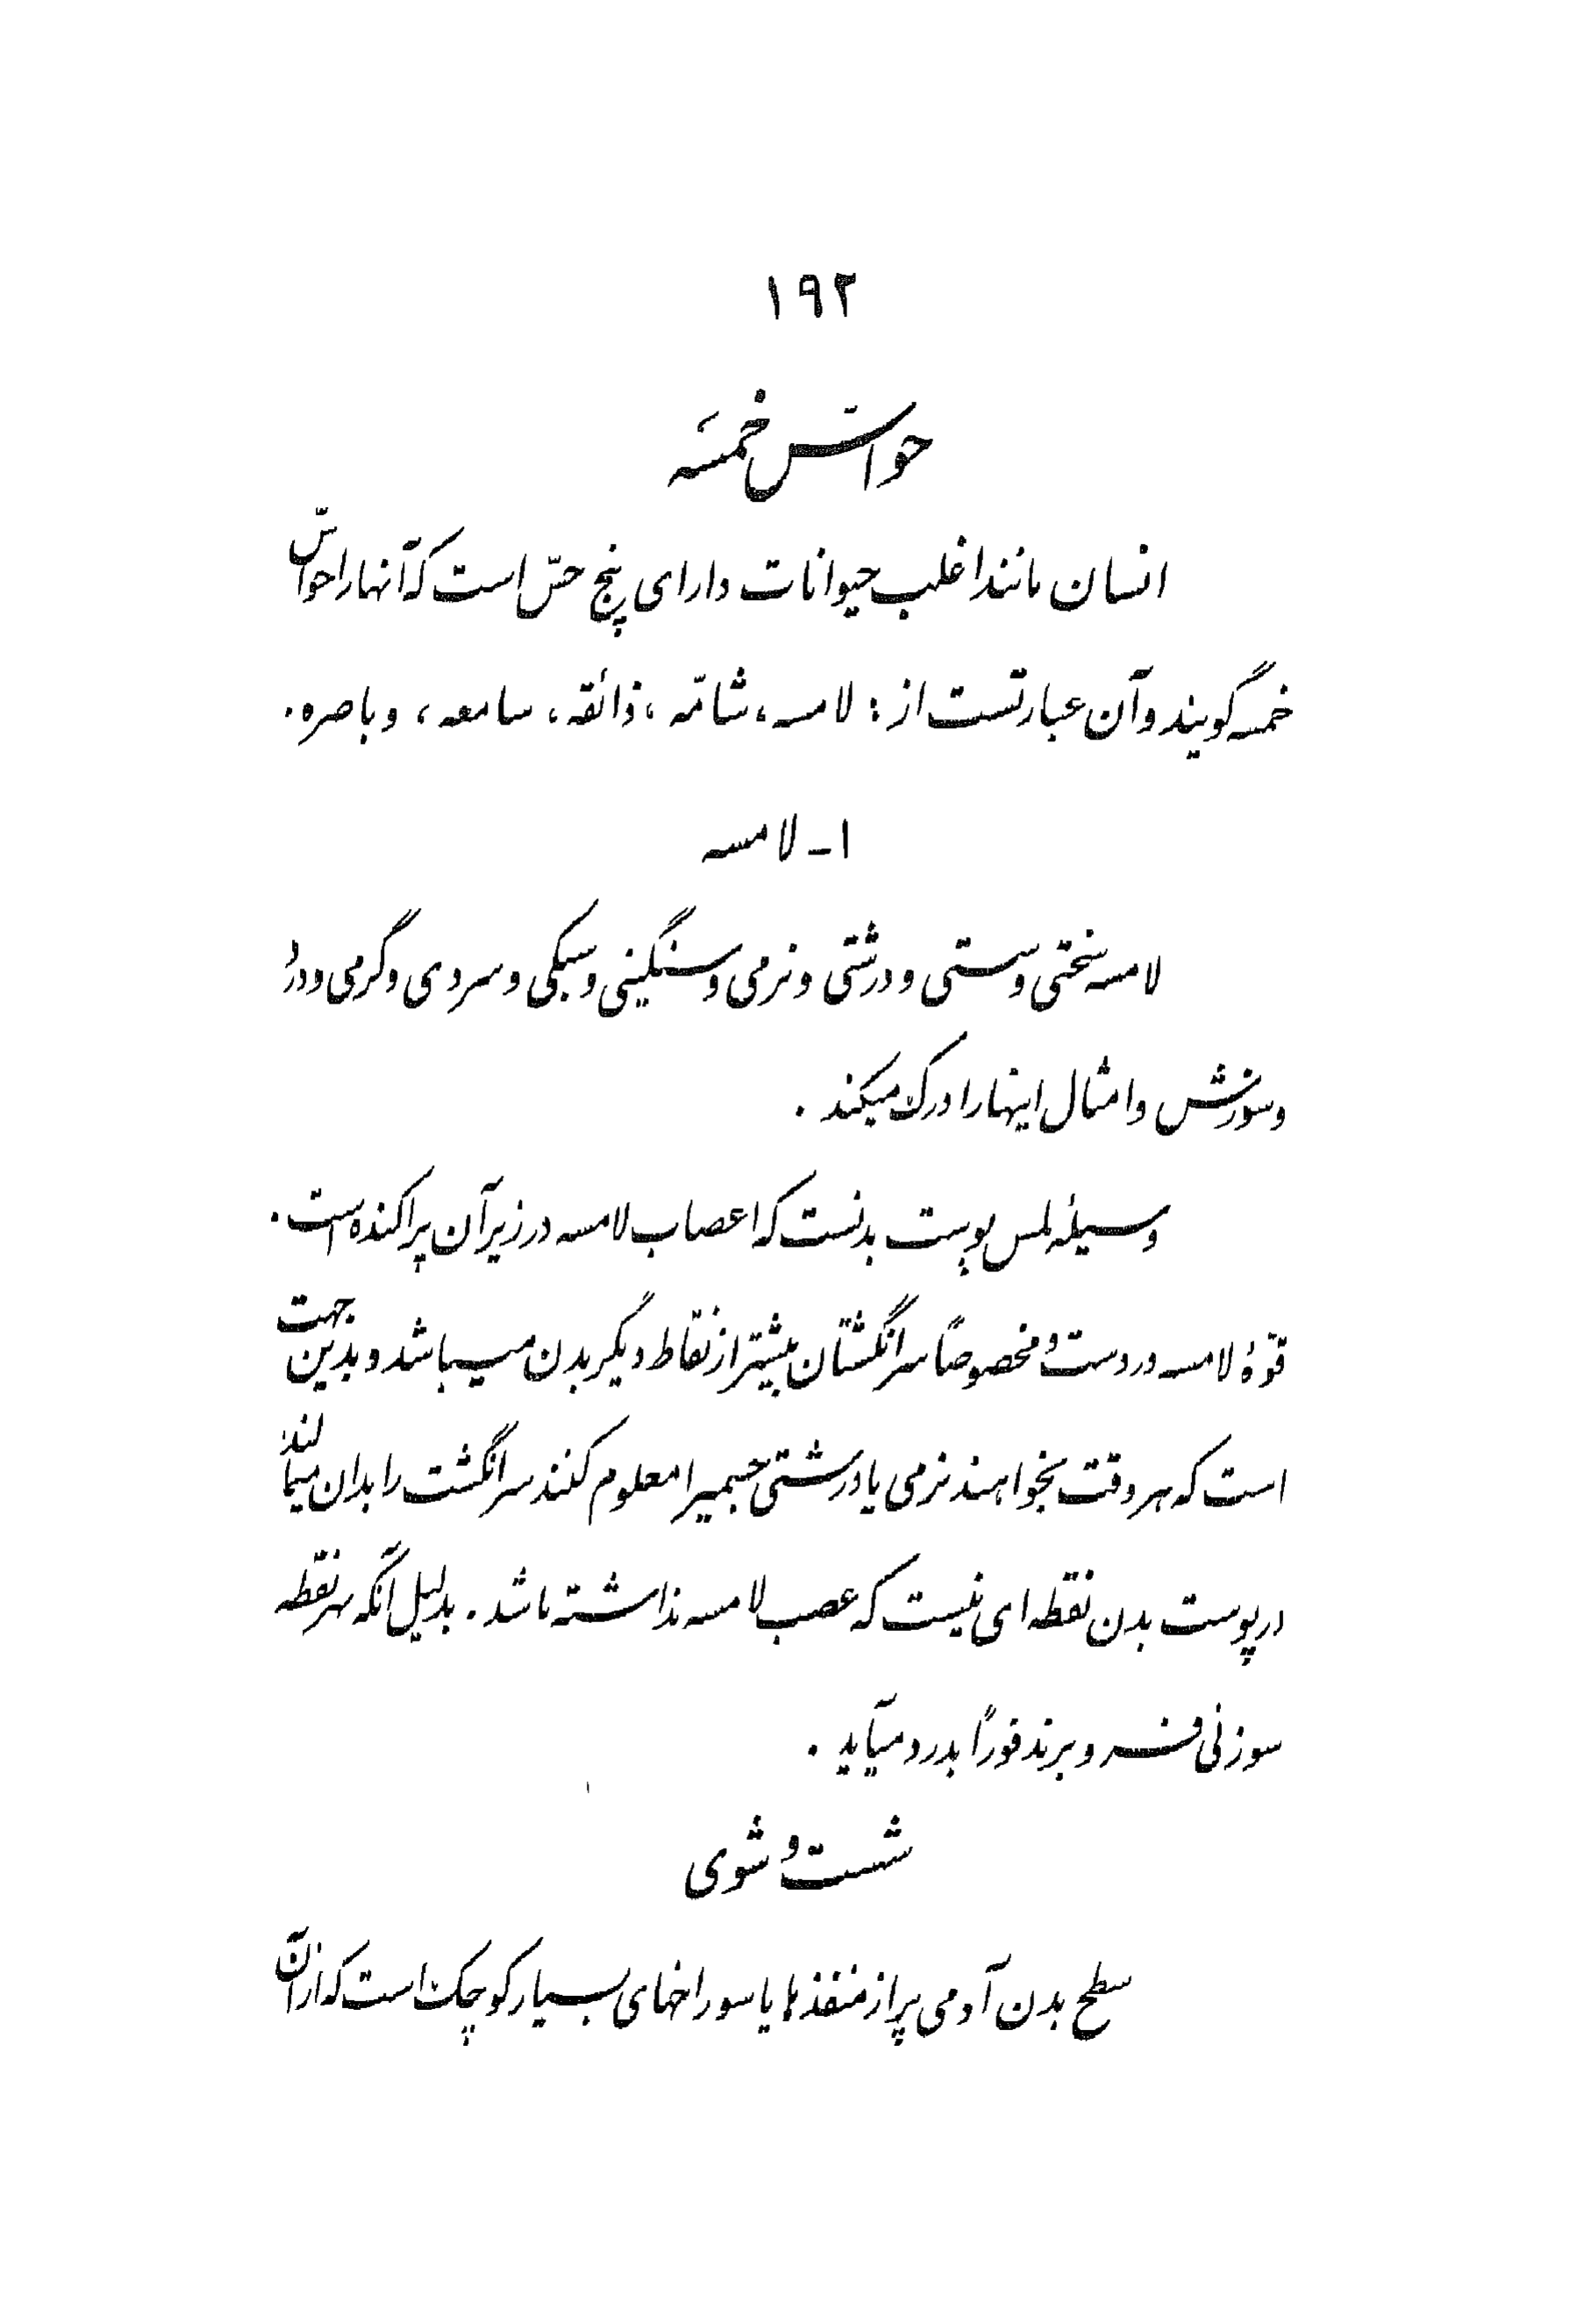 ۱۹۲
حواسّ خمسه
انسان مانند اغلب حیوانات دارای پنج حسّ است که آنها را حواسّ
خمسه گویند و آن عبارتست از : لامسه، شامّه ، ذائقه ، سامعه ، و باصره .
۱ - لامسه
لامسه سختی و سستی و درشتی و نرمی و سنگینی و سبکی و سردی و گرمی و درد
و سوزش و امثال اینها را درک میکند .
وسیلهٔ لمس پوست بدنست که اعصاب لامسه در زیر آن پراکنده است .
قوّهٔ لامسه در دست و مخصوصاً سر انگشتان بیشتر از نقاط دیگر بدن میباشد و بدین جهت
است که هر وقت بخواهند نرمی یا درشتی جسمیرا معلوم کنند سر انگشت را بدان میمالند
در پوست بدن نقطه ای نیست که عصب لامسه نداشته باشد . بدلیل آنکه بهر نقطه
سوزنی فرو برند فوراً بدرد میآید .
شست و شوی
سطح بدن آدمی پر از منفذها یا سوراخهای بسیار کوچک است که از آن